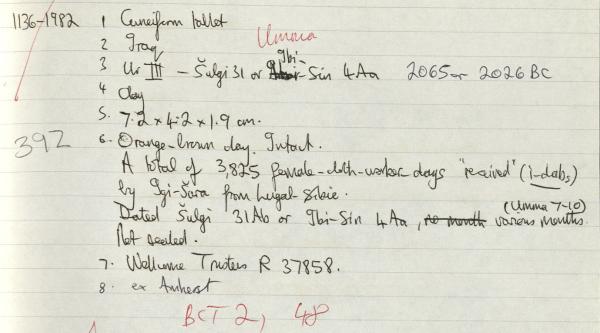 1136-1982 1 Cuneiform tablet
2 Iraq Umma
3 Ur III - Šulgi 31 or Ibbi-Sin 4Aa 2065 or 2026 BC
4 Clay
5. 7.2 x 4.2 x 1.9 cm.
392 6. Orange-brown clay. Intact.
A total of 3,825 female-cloth-worker days "received" (i-dab5)
by Igi-Šara from Lugal-
Dated Šulgi 31Ab or Ibbi-Sin 4Aa, no month various months (Umma 7-10)
Not sealed.
7. Wellcome Trustees R 37858.
8. ex Amherst
BCT 2, 48